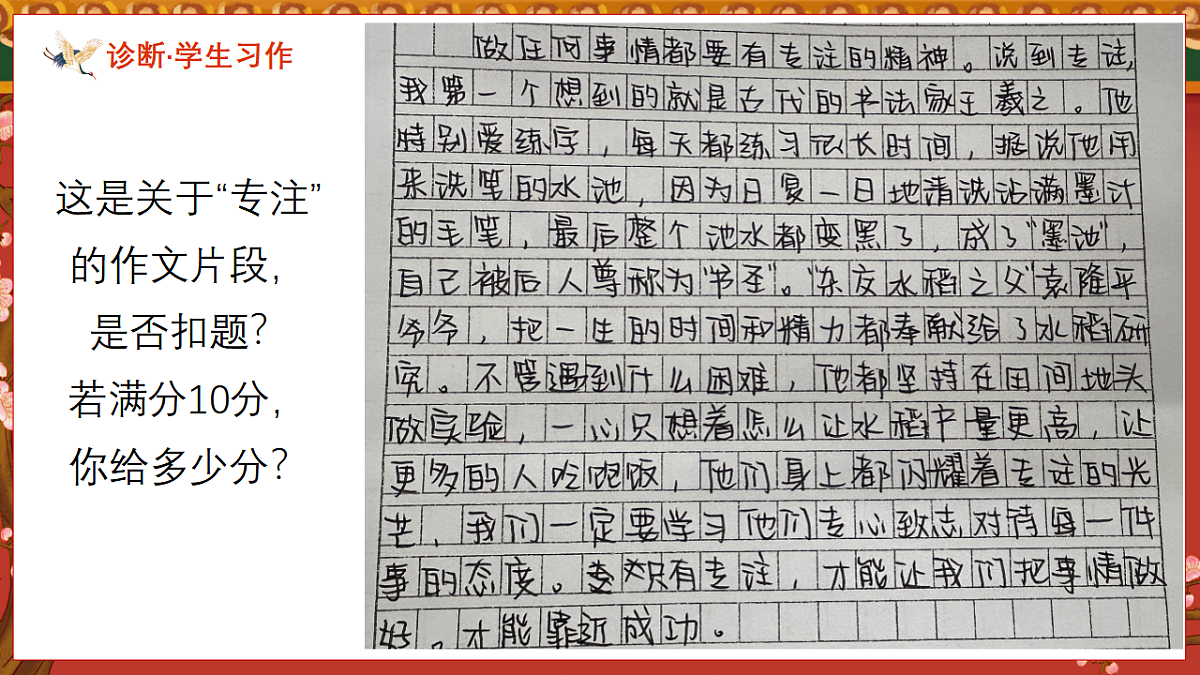 诊断·学生习作
这是关于“专注”
的作文片段，
是否扣题？
若满分10分，
你给多少分？
做任何事情都要有专注的精神。说到专注，
我第一个想到的就是古代的书法家王羲之。他
特别爱练字，每天都练习冗长时间，据说他用
来洗笔的水池，因为日复一日地清洗沾满墨汁
的毛笔，最后整个池水都变黑了，成了“墨池”，
自己被后人尊称为“书圣”。“杂交水稻之父”袁隆平
爷爷，把一生的时间和精力都奉献给了水稻研
究。不管遇到什么困难，他都坚持在田间地头
做实验，一心只想着怎么让水稻产量更高，让
更多的人吃饱饭，他们身上都闪耀着专注的光
芒，我们一定要学习他们专心致志对待每一件
事的态度。只有专注，才能让我们把事情做
好。才能靠近成功。